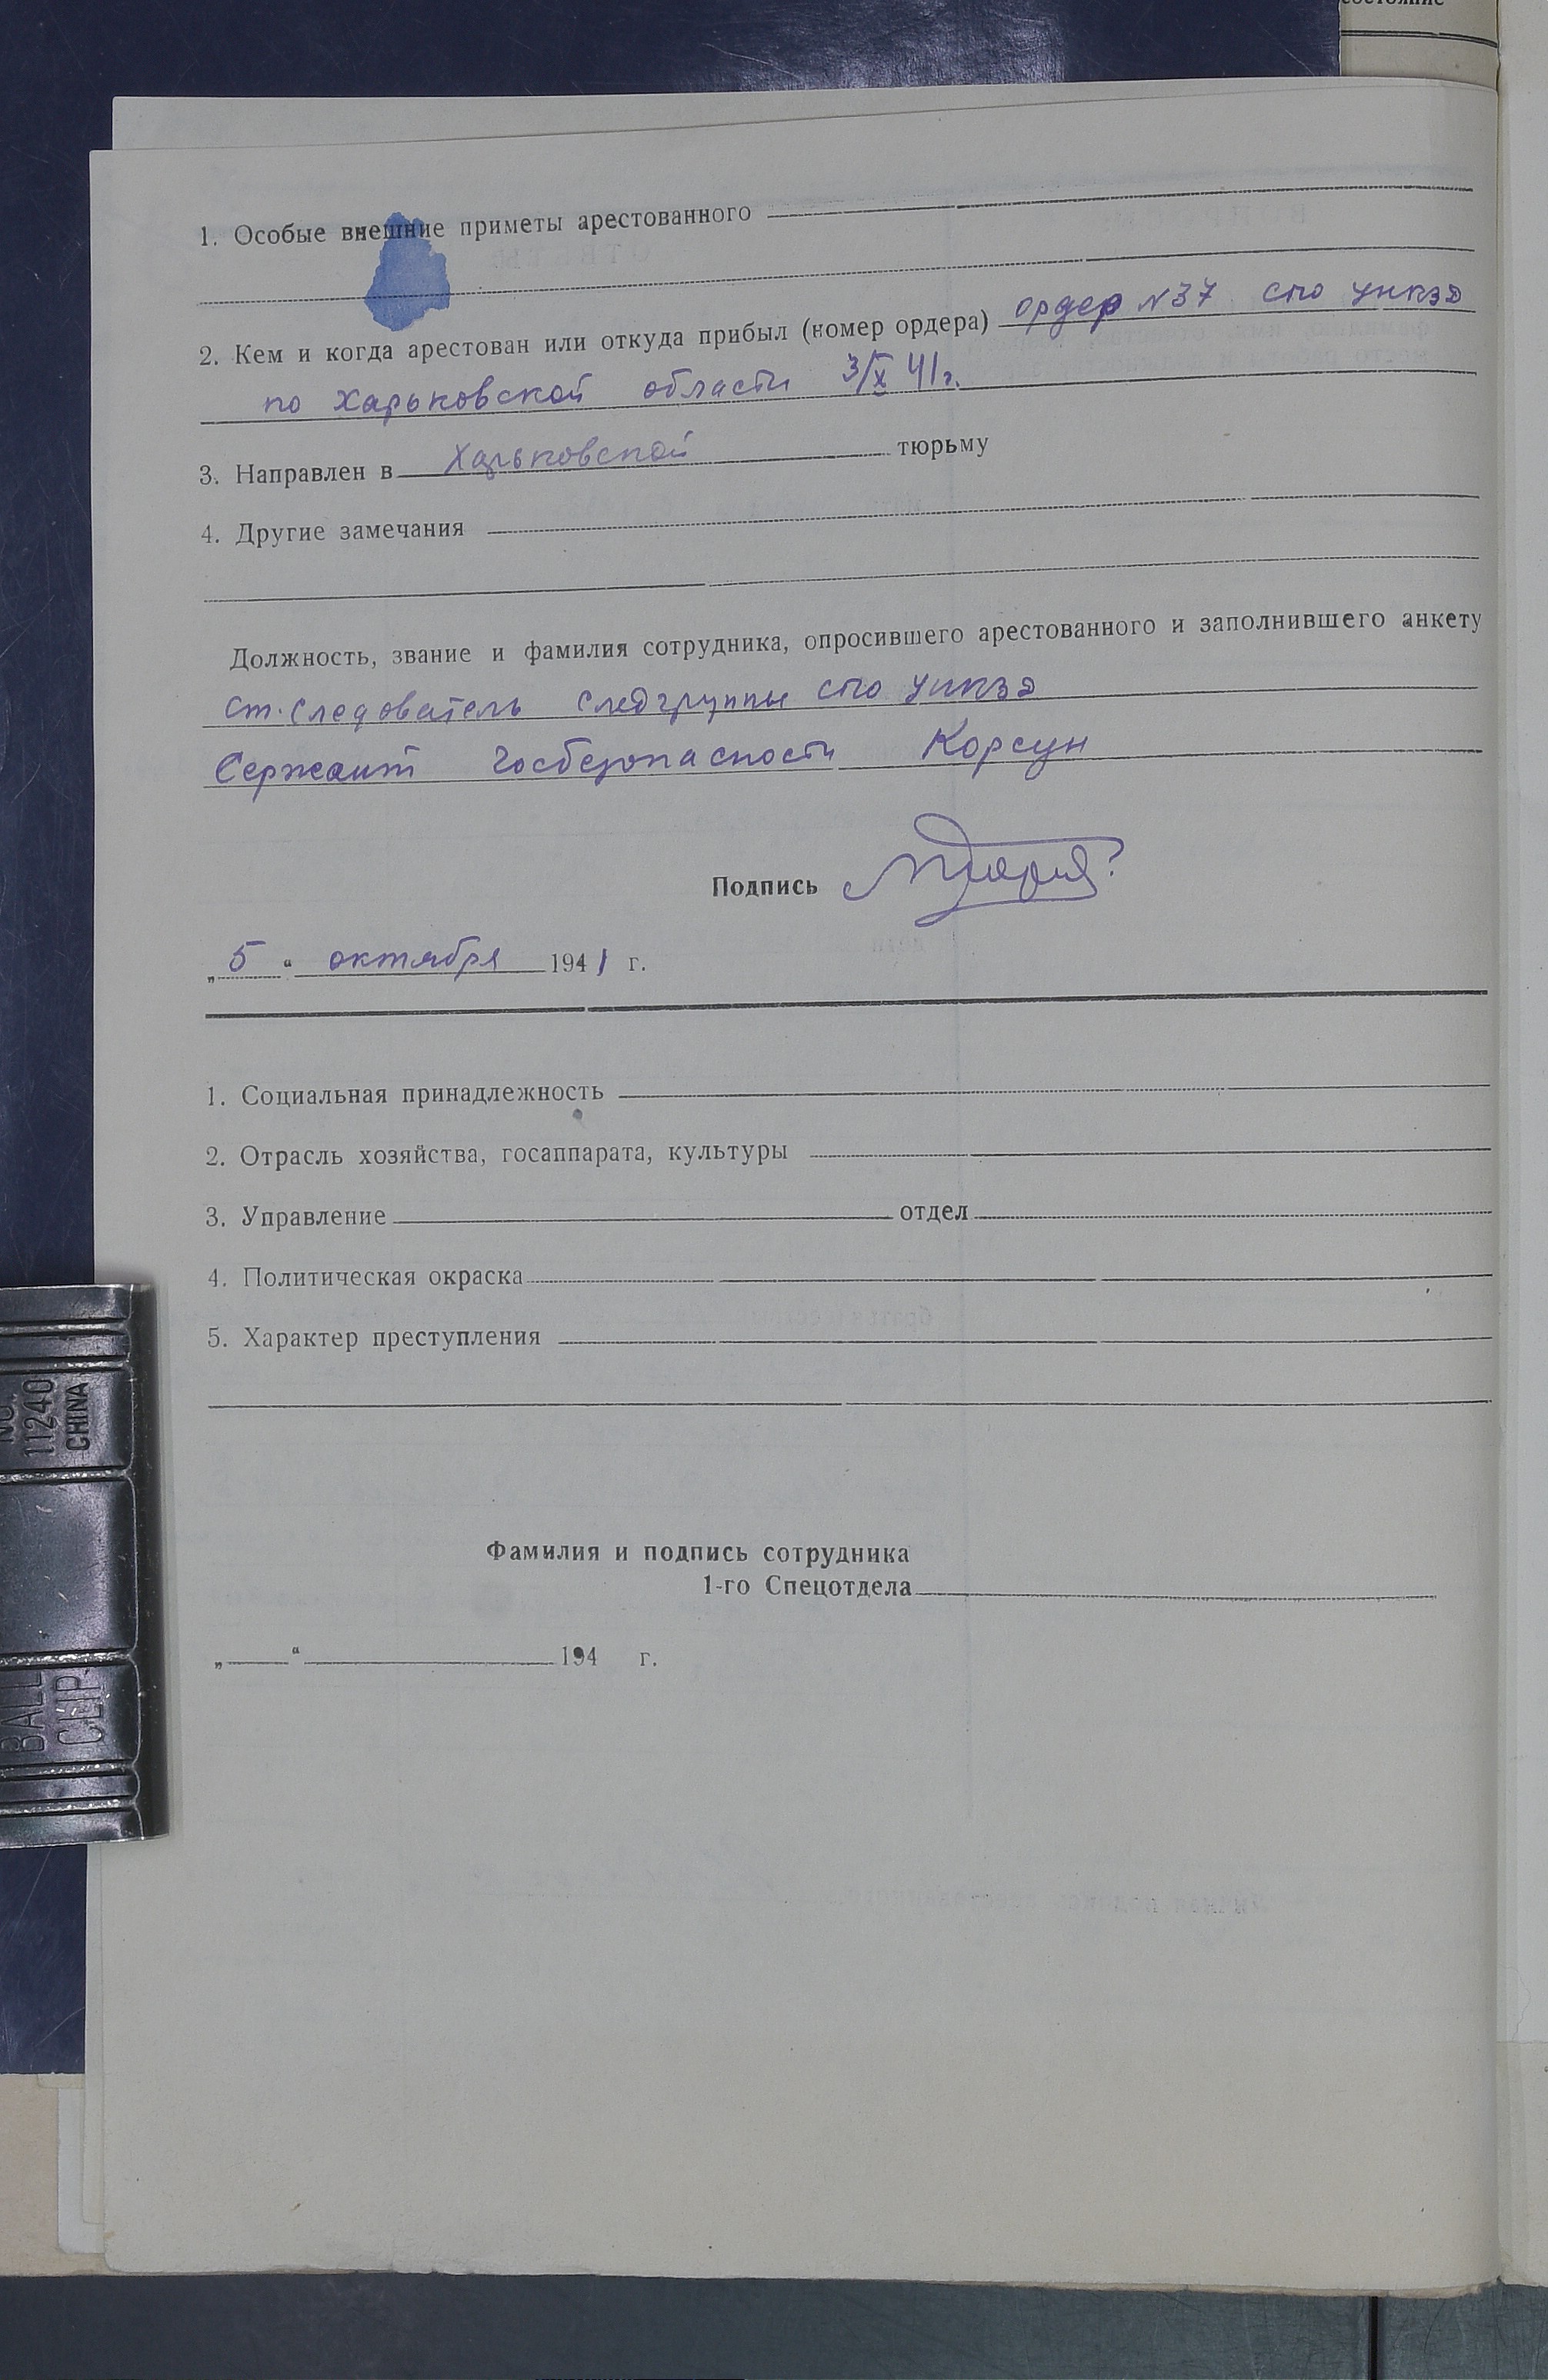 состояние
1. Особые внешние приметы арестованного
2. Кем и когда арестован или откуда прибыл (номер ордера) ордер №37 СПО УНКВД
по Харьковской области 3/X 41г.
3. Направлен в Харьковской тюрьму
4. Другие замечания
Должность, звание и фамилия сотрудника, опросившего арестованного и заполнившего анкету
Ст. Следователь Следгруппы СПО УНКВД
Сержант Госбезопасности Корсун
Подпись
„5“ октября 1941 г.
1. Социальная принадлежность
2. Отрасль хозяйства, госаппарата, культуры
3. Управление отдел
4. Политическая окраска
5. Характер преступления
Фамилия и подпись сотрудника
1-го Спецотдела
„ “ 194 г.
NO.
11240
CHINA
BALL
CLIP